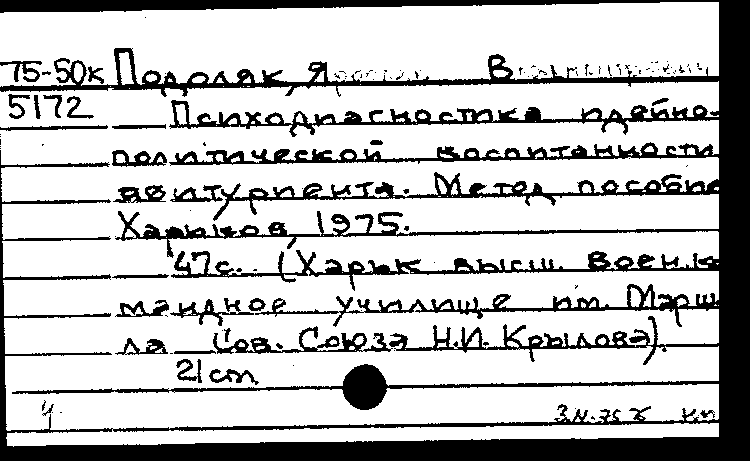 75-50к Подоляк, Ярослав В
5172 Психодиагностика идейно-
политической воспитанности
абитуриента. Метод пособие
Харьков, 1975.
47с. (Харьк высш. воен. ко
мандное училище им. Марша
ла Сов. Союза Н.И. Крылова).
21 cm
4